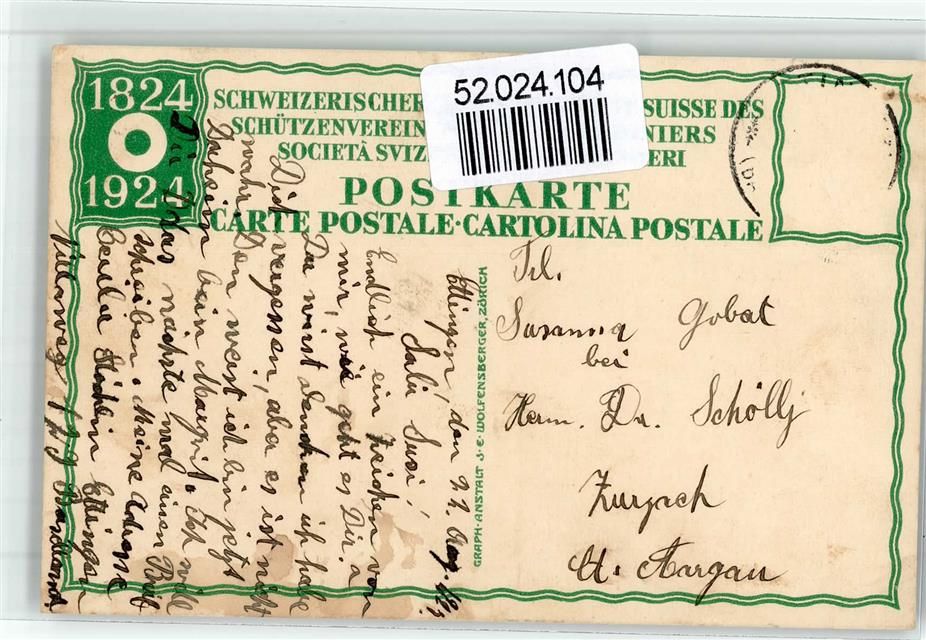 52.024.104
1824
1924
SCHWEIZERISCHER
SUISSE DES
SCHÜTZENVEREIN
NIERS
SOCIETÀ SVIZ
ERI
POSTKARTE
CARTE POSTALE·CARTOLINA POSTALE
GRAPH·ANSTALT J·E·WOLFENSBERGER, ZÜRICH
Frl.
Susanna Gobat
bei
Herrn. Dr. Schölly
Zurzach
Kt. Aargau
Ettingen, den 21. Aug.
Salü Susi!
Endlich ein Zeichen von
mir, wie geht es Dir.
Du wirst denken ich habe
Dich vergessen, aber es ist nicht
wahr. Den weist ich bin jetzt
Daheim beim Margrit. Ich will
Dir das nächste mal einen Brief
schreiben. Meine Adresse
Cecile Ettingen